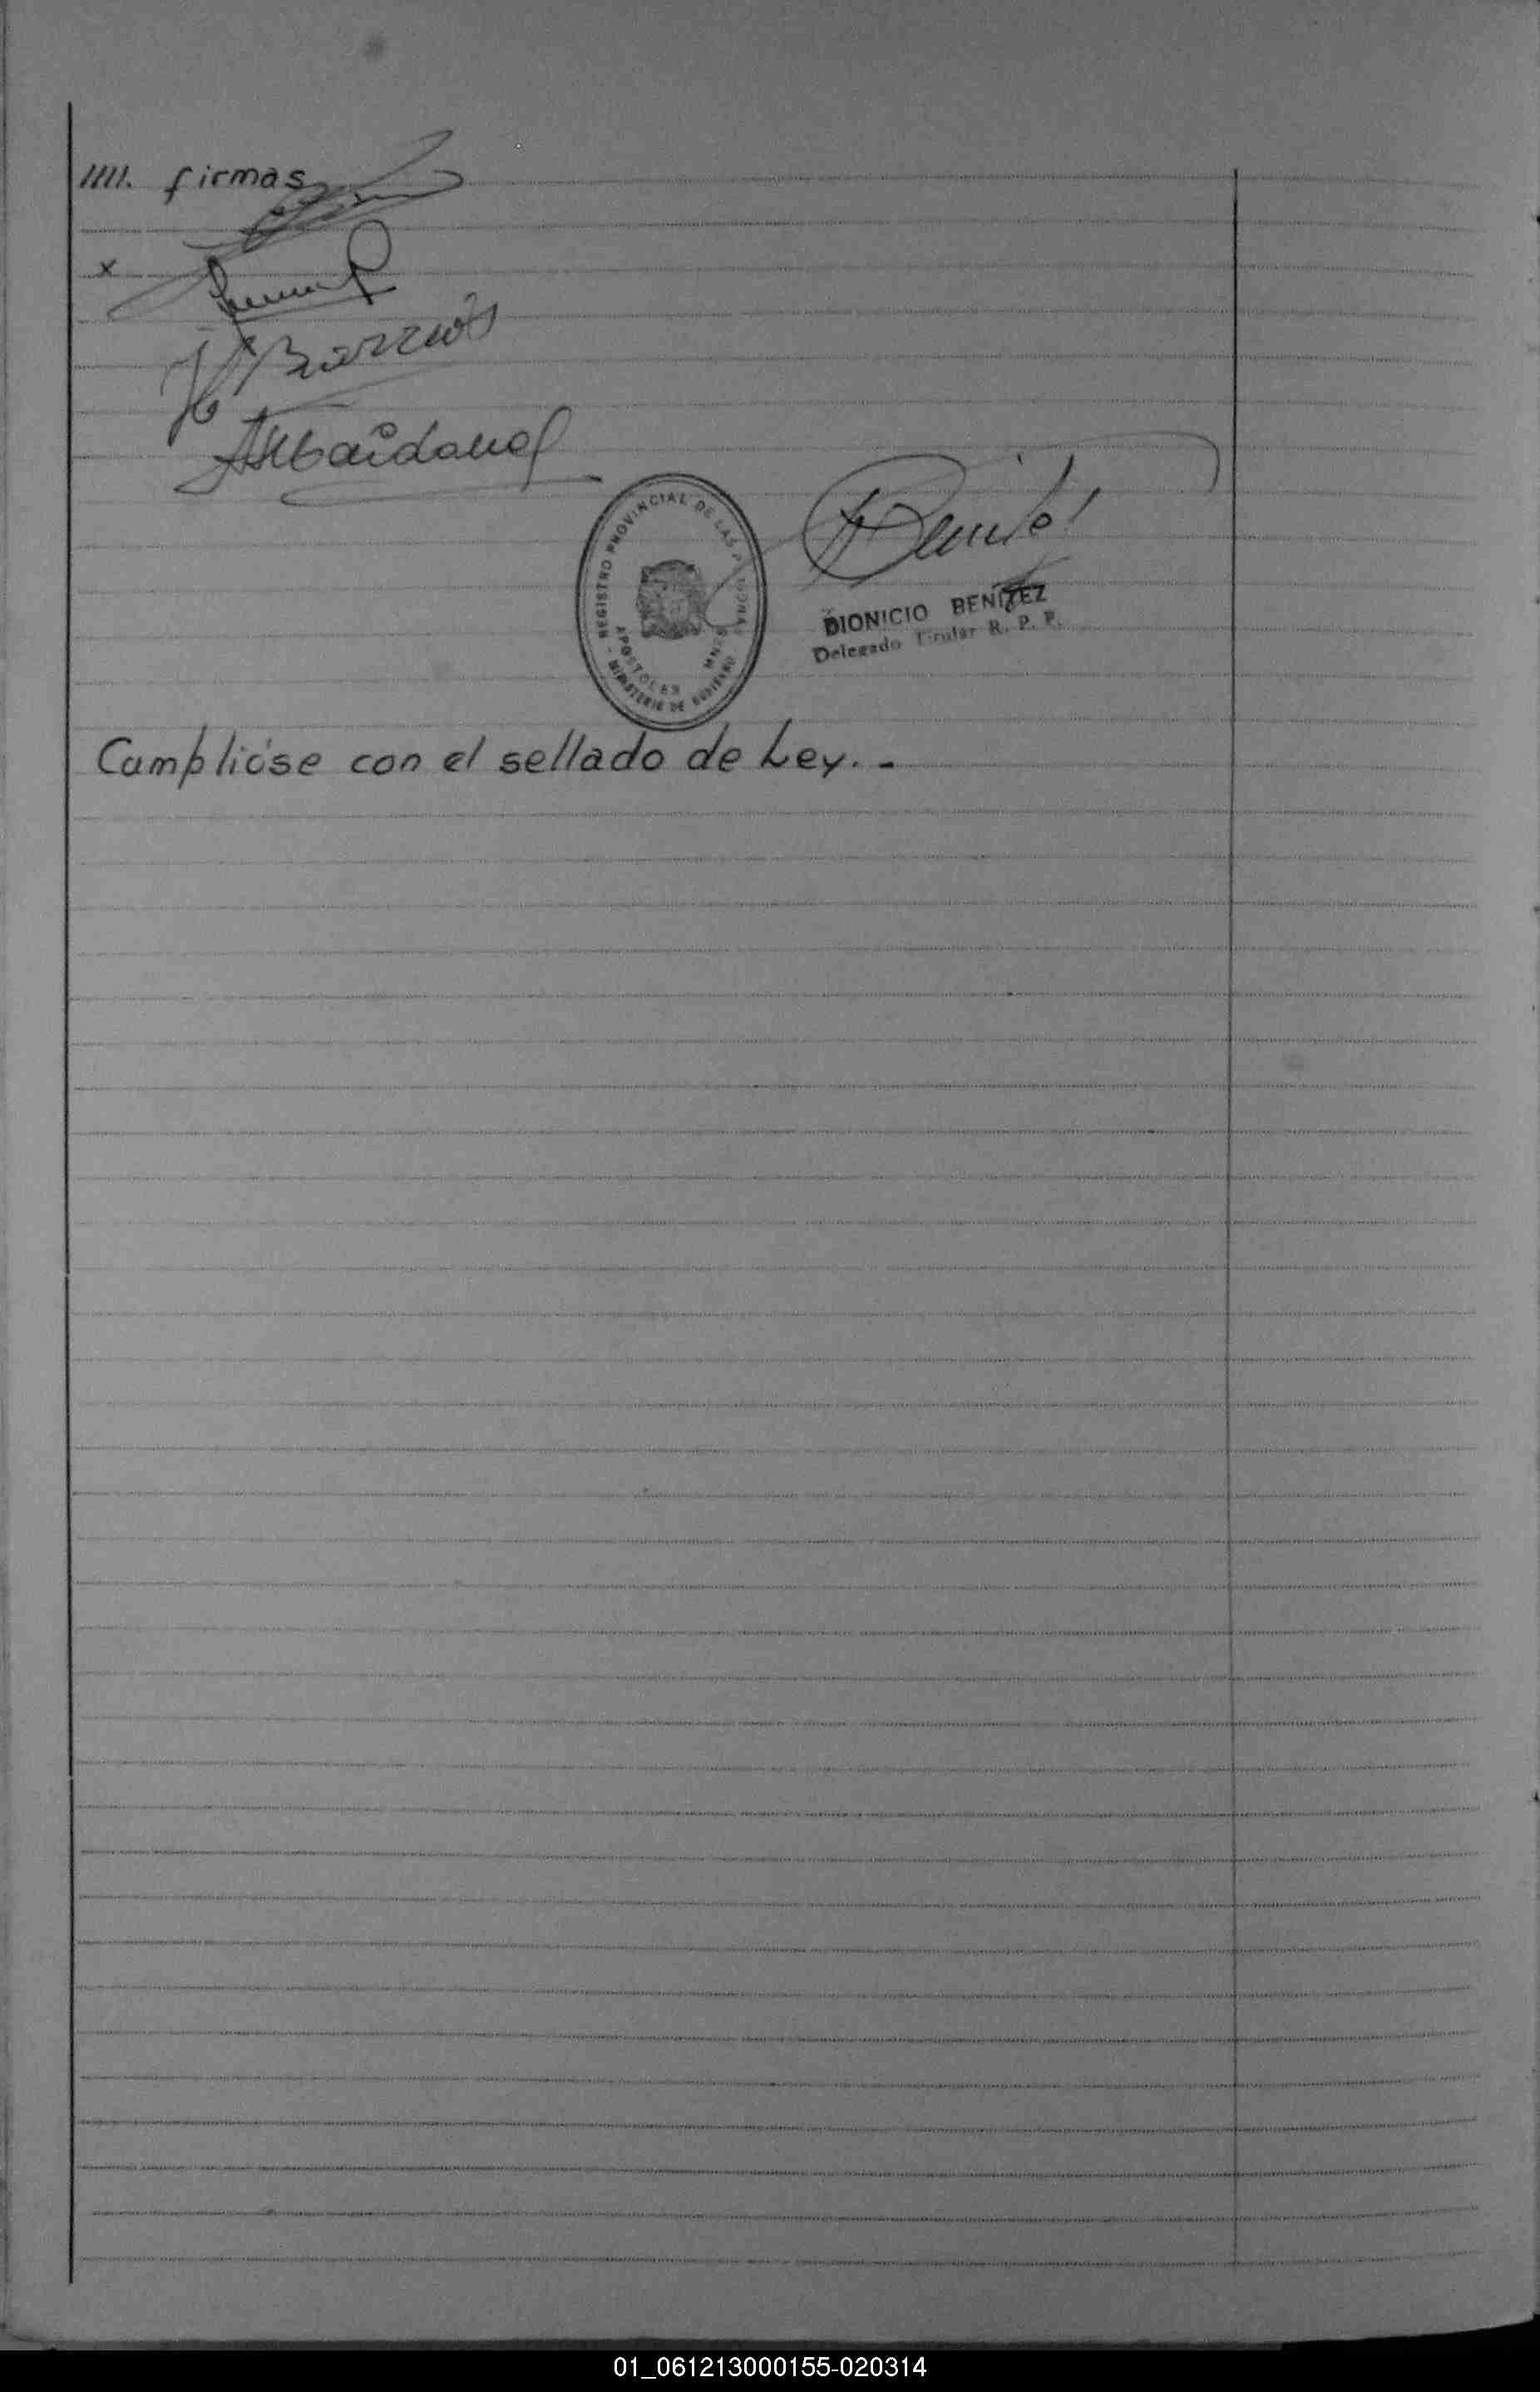 ///// . firmas
x
Barrios
REGISTRO PROVINCIAL DE LAS PERSONAS
APOSTOLES MNES
- MINISTERIO DE GOBIERNO
DIONICIO BENÍTEZ
Delegado Titular R. P. P.
Cumplióse con el sellado de Ley. -
01_061213000155-020314